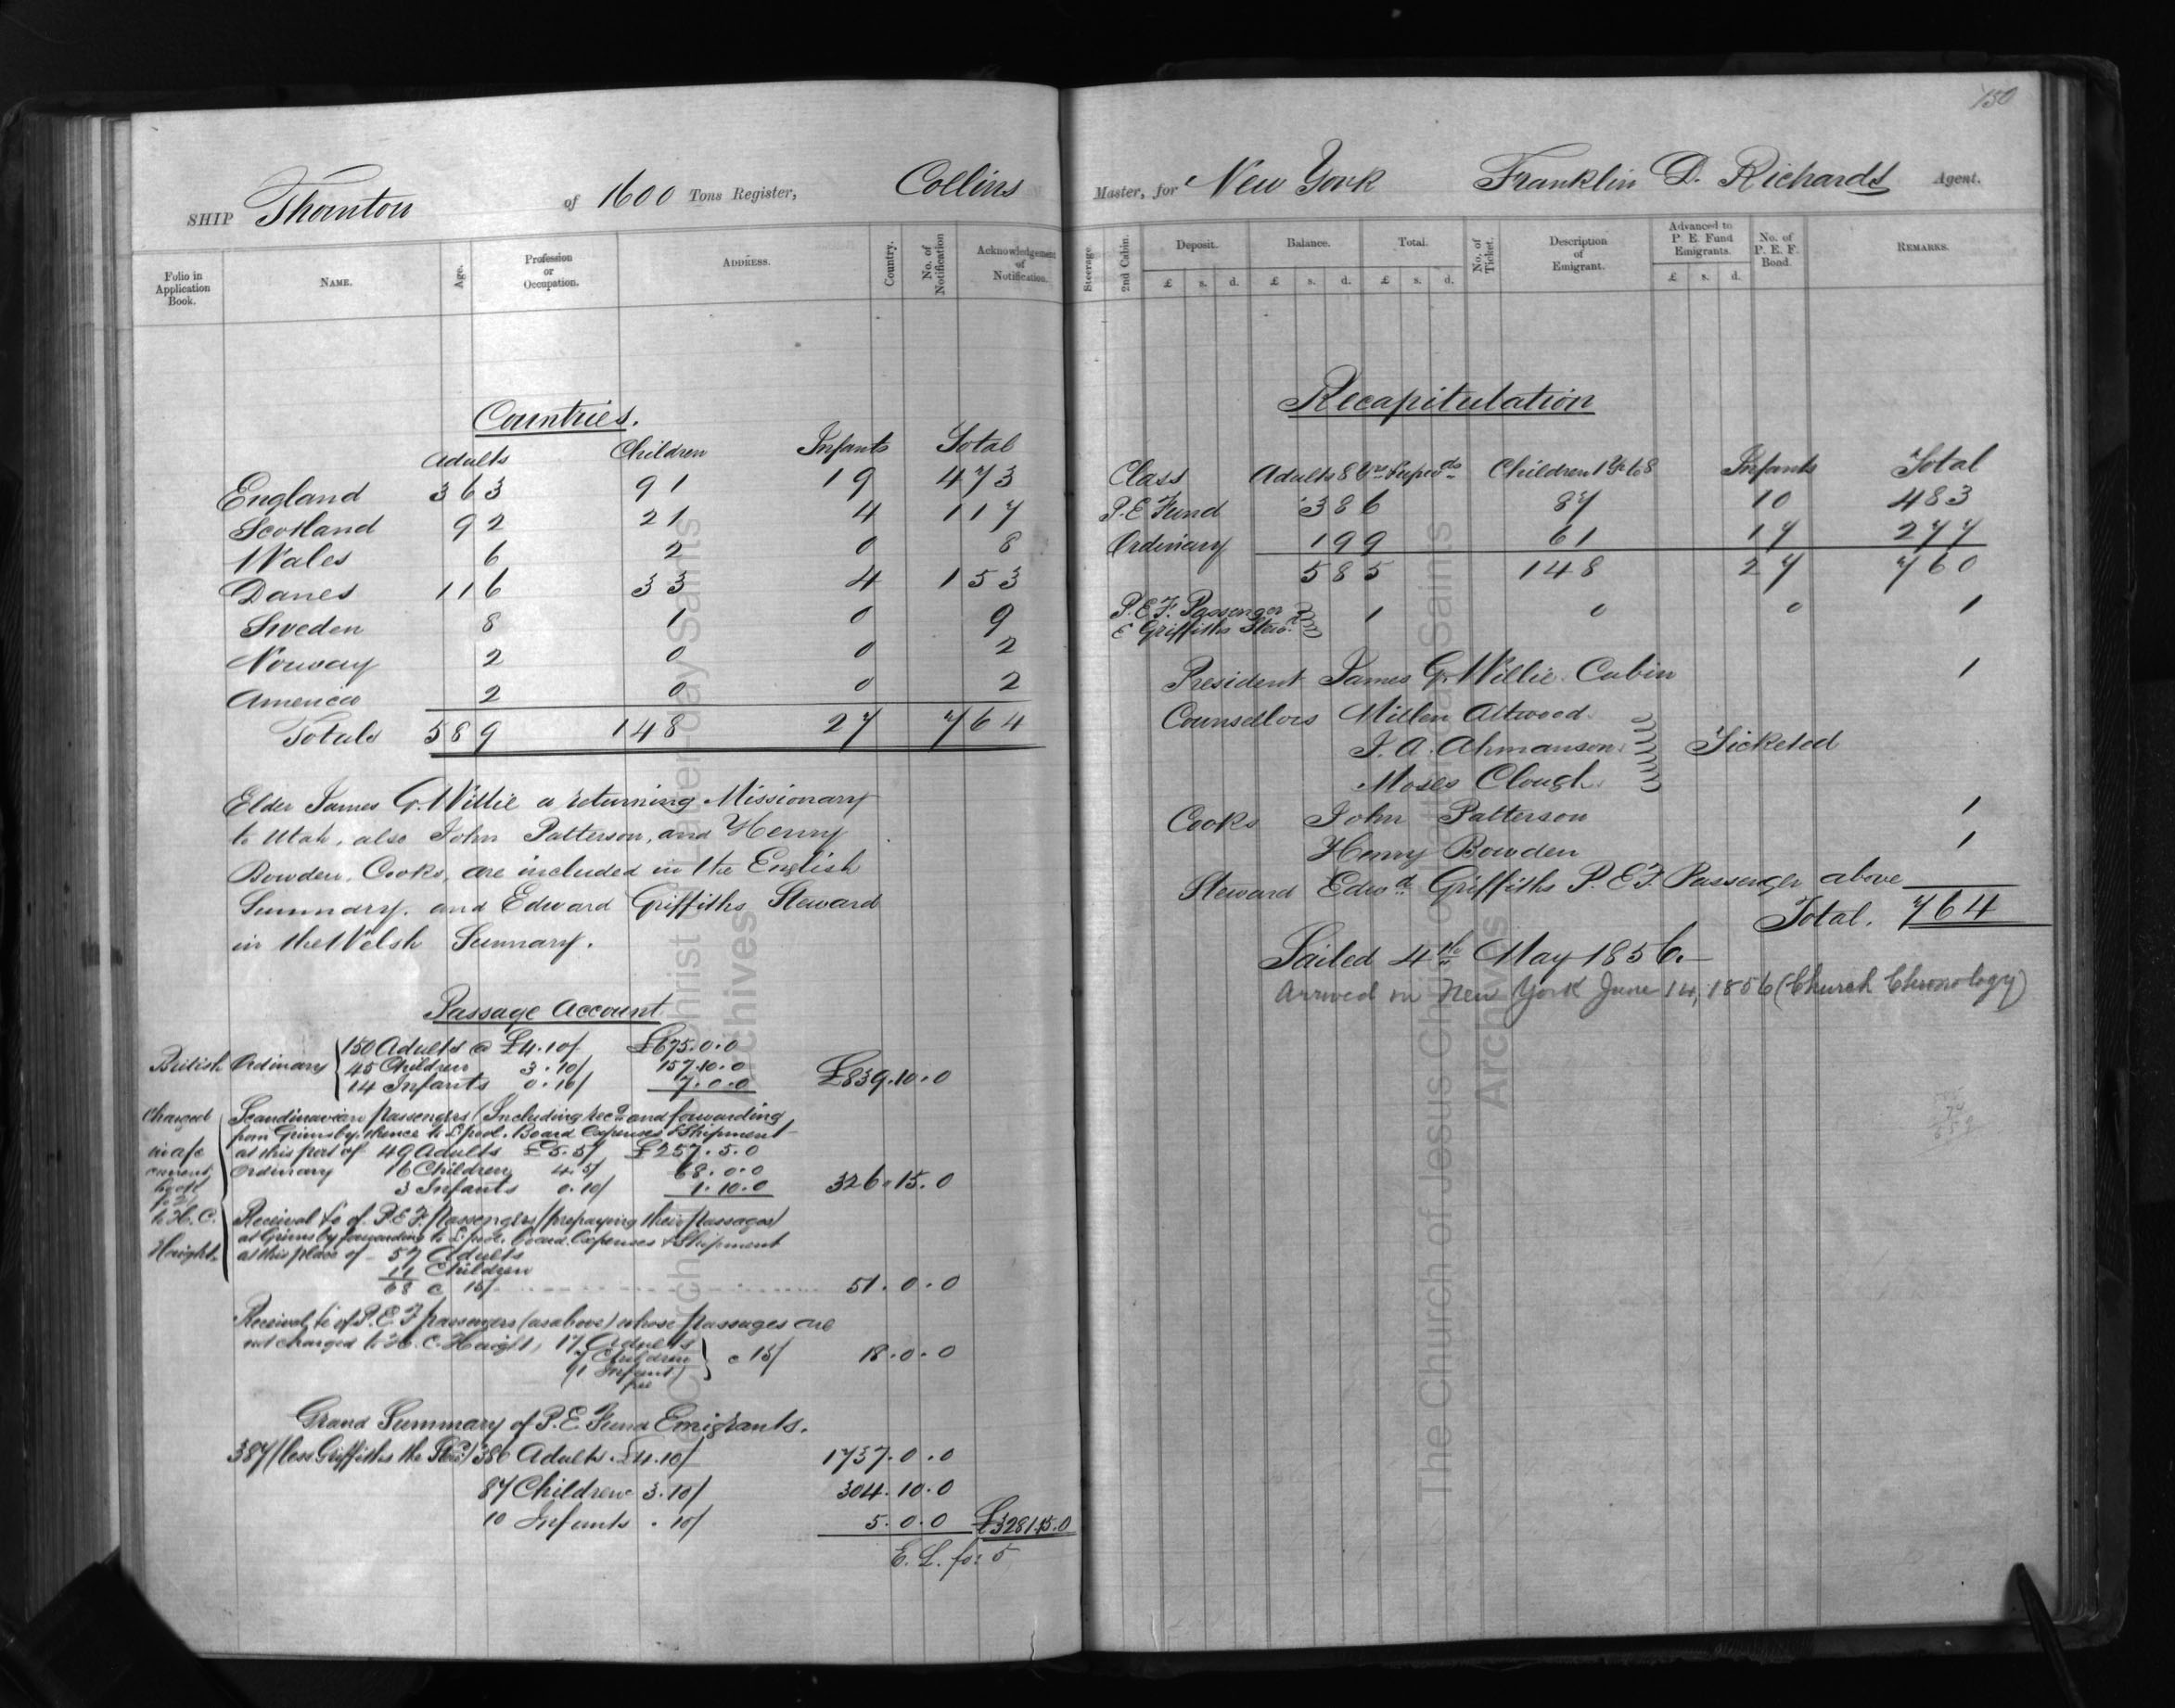 150
SHIP Thornton of 1600 Tons Register, Collins
Folio in Application Book. NAME. Age. Profession or Occupation. ADDRESS. Country. No. of Notification Acknowledgement of Notification.
Countries.
Adults Children Infants Total
England 363 91 19 473
Scotland 92 21 4 117
Wales 6 2 0 8
Danes 116 33 4 153
Sweden 8 1 0 9
Norway 2 0 0 2
America 2 0 0 2
Totals 589 148 27 764
Elder James G. Willie a returning Missionary
to Utah, also John Patterson, and Henry
Bowden, Cooks, are included in the English
Summary. and Edward Griffiths Steward
in the Welsh Summary.
Passage Account
British Ordinary 150 Adults @ £4.10/ £675.0.0
45 Children 3.10/ 157.10.0
14 Infants 0.10/ 7.0.0 £839.10.0
Charged Scandinavian passengers (Including rec. and forwarding
from Grimsby, thence to L'pool. Board Expenses & Shipment
in a/c at this port of 49 Adults £5.5/ £257.5.0
current Ordinary 16 Children 4.5/ 68.0.0
3 Infants 0.10/ 1.10.0 326.15.0
to H. C. Receival &c of P.E.F. Passengers (prepaying their passages)
at Grimsby forwarding to L'pool. board Expenses & Shipment
Haight. at this place of 57 Adults
11 Children
68 @ 15/ 51.0.0
Receival &c of P.E.F passengers (as above) whose passages are
not charged to H. C. Haight, 17 Adults
7 Children @ 15/ 18.0.0
(1 Infant)
free
Grand Summary of P.E. Fund Emigrants.
387 (less Griffiths the Stew.d) 386 Adults £4.10/ 1737.0.0
87 Children 3.10/ 304.10.0
10 Infants . 10/ 5.0.0 £3281.15.0
E. L. for 5
Master, for New York Franklin D. Richards Agent.
Steerage. 2nd Cabin. Deposit. Balance. Total. No. of Ticket. Description of Emigrant. Advanced to P. E. Fund Emigrants. No. of P. E. F. Bond. REMARKS.
£ s. d. £ s. d. £ s. d. £ s. d.
Recapitulation
Class Adults 8 Yrs & upwds Children 1 Yr to 8 Infants Total
P.E Fund 386 87 10 483
Ordinary 199 61 17 277
585 148 27 760
P.E.F. Passenger
E Griffiths Stew.d 1 0 0 1
President James G. Willie Cabin 1
Counsellors Millen Attwood
J. A. Ahmanson Ticketed
Moses Clough
Cooks John Patterson 1
Henry Bowden 1
Steward Edwd Griffiths P.E.F. Passenger above
Total. 764
Sailed 4th May 1856.
Arrived in New York June 14, 1856 (Church Chronology)
The Church of Jesus Christ of Latter-day Saints
Archives